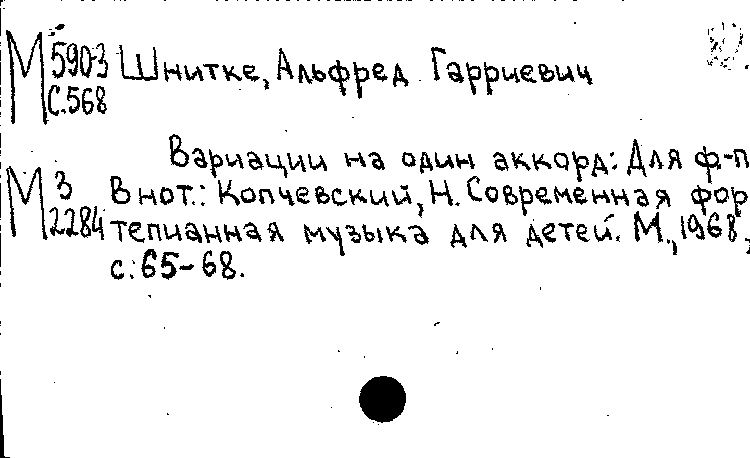 М 590-3 Шнитке, Альфред Гарриевич
С.568
Вариации на один аккорд: Для ф-п
М 3 В нот.: Копчевский, Н. Современная фор
2284 тепианная музыка для детей. М., 1968,
с.: 65-68.